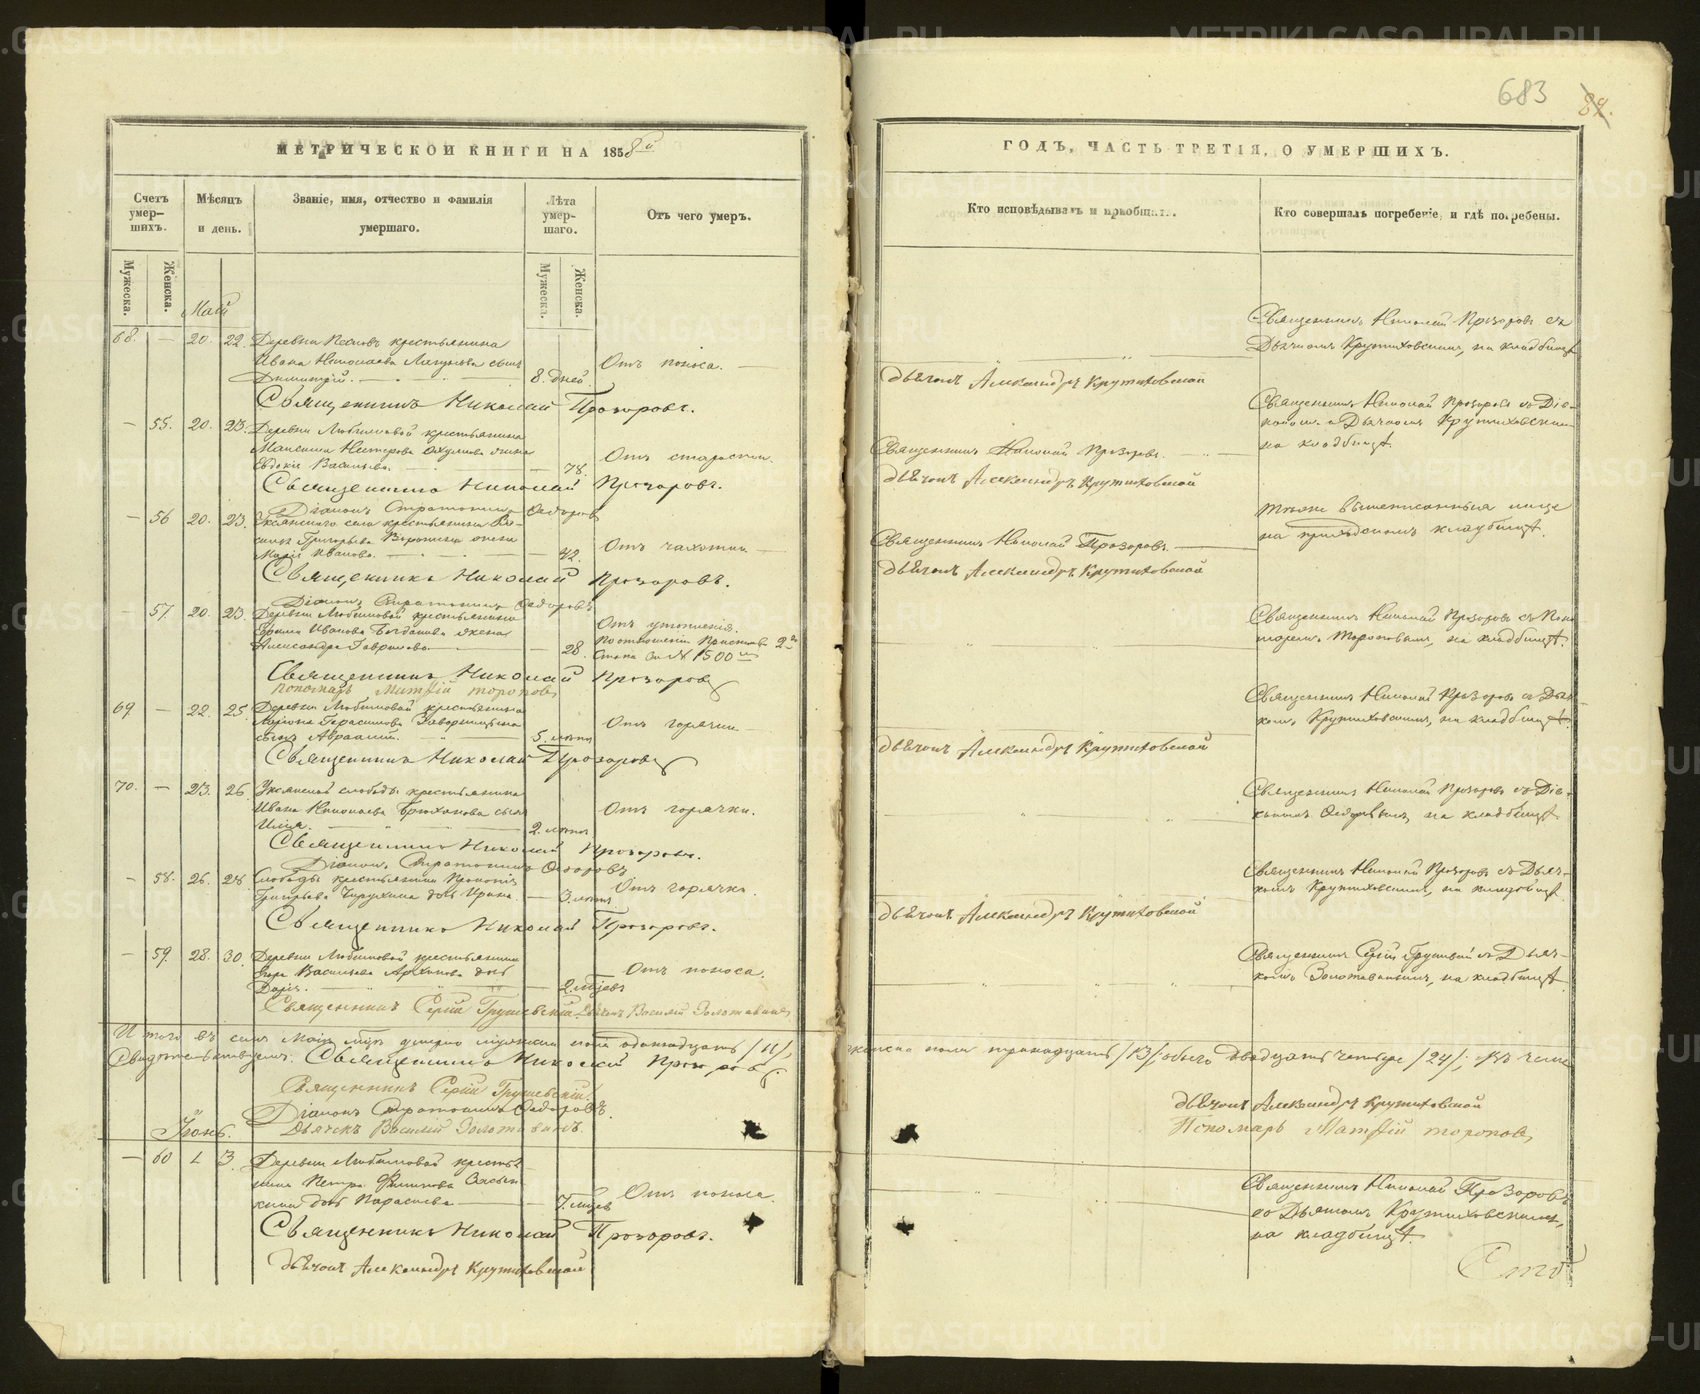 683
82.
МЕТРИЧЕСКОЙ КНИГИ НА 1858й
ГОДЪ, ЧАСТЬ ТРЕТІЯ, О УМЕРШИХЪ.
Счетъ умер-шихъ.
Мѣсяцъ и день.
Званіе, имя, отчество и фамилія умершаго.
Лѣта умер-шаго.
Отъ чего умеръ.
Кто исповѣдывалъ и пріобщалъ.
Кто совершалъ погребеніе, и гдѣ погребены.
Мужеска.
Женска.
Мужеска.
Женска.
Май
68. — 20. 22. Деревни крестьянина
Ивана Николаева сынъ
Димитрій. 8. дней. Отъ поноса.
Священникъ Николай Прозоровъ.
дьячокъ Александръ Крутиховской
Священникъ Николай Прозоровъ съ
Дьячкомъ Крутиховскимъ, на кладбищѣ
— 55. 20. 23. Деревни Любимовой крестьянина
Максима Нестерова жена
Евдокія Васильева. 78. Отъ старости.
Священникъ Николай Прозоровъ.
Діаконъ Стратоникъ Ѳедоровъ
Священникъ Николай Прозоровъ.
дьячокъ Александръ Крутиховской
Священникъ Николай Прозоровъ съ Діа-
кономъ и Дьячкомъ Крутиховскимъ
на кладбищѣ
— 56 20. 23. села крестьянина Ва-
силья Григорьева жена
Марія Иванова. 42. Отъ чахотки
Священникъ Николай Прозоровъ.
Діаконъ Стратоникъ Ѳедоровъ
Священникъ Николай Прозоровъ.
дьячокъ Александръ Крутиховской
тѣже вышеписанныя лица
на приходскомъ кладбищѣ.
— 57. 20. 23. Деревни Любимовой крестьянина
Ивана Богданова жена
Александра Гаврилова 28. Отъ утопленія.
По отношенію Пристава 2го
Стана за № 1500м
Священникъ Николай Прозоровъ
Пономарь Матѳій Тороповъ
Священникъ Николай Прозоровъ съ Поно-
маремъ Тороповымъ, на кладбищѣ.
69 — 22. 25. Деревни Любимовой крестьянина
Герасимова
сынъ Авраамій. 5. лѣтъ Отъ горячки
Священникъ Николай Прозоровъ
дьячокъ Александръ Крутиховской
Священникъ Николай Прозоровъ съ Дьяч-
комъ Крутиховскимъ, на кладбищѣ
70. — 23. 26. слободы крестьянина
Ивана Николаева Брюханова сынъ
Илія. 2. лѣтъ Отъ горячки.
Священникъ Николай Прозоровъ.
Діаконъ Стратоникъ Ѳедоровъ
Священникъ Николай Прозоровъ съ Діа-
кономъ Ѳедоровымъ, на кладбищѣ
— 58. 26. 28. Слободы крестьянина Прокопія
Григорьева дочь Ирина. 3. лѣтъ Отъ горячки.
Священникъ Николай Прозоровъ.
дьячокъ Александръ Крутиховской
Священникъ Николай Прозоровъ съ Дьяч-
комъ Крутиховскимъ, на кладбищѣ
— 59. 28. 30. Деревни Любимовой крестьянина
Егора Васильева дочь
Дарія. 2. мѣсяцъ Отъ поноса.
Священникъ Сергій Грушевскій. Дьячокъ Василій Золотавинъ
Священникъ Сергій Грушевскій съ Дьяч-
комъ Золотавинымъ, на кладбищѣ
Итого въ семъ Маіѣ мцѣ умерло мужеска пола одинадцать /11/, женска пола тринадцать /13/; обоего двадцать четыре /24/; въ чемъ
Свидѣтельствуемъ: Священникъ Николай Прозоровъ.
Священникъ Сергій Грушевскій.
Діаконъ Стратоникъ Ѳедоровъ.
Дьячекъ Василій Золотавинъ.
дьячокъ Александръ Крутиховской
Пономарь Матѳій Тороповъ
Іюнь.
— 60 1. 3. Деревни Любимовой крестья-
нина Петра Филипова
дочь Параскева 7. мѣсяц Отъ поноса.
Священникъ Николай Прозоровъ.
дьячокъ Александръ Крутиховской
Священникъ Николай Прозоровъ
со Дьячкомъ Крутиховскимъ,
на кладбищѣ.
METRIKI.GASO-URAL.RU